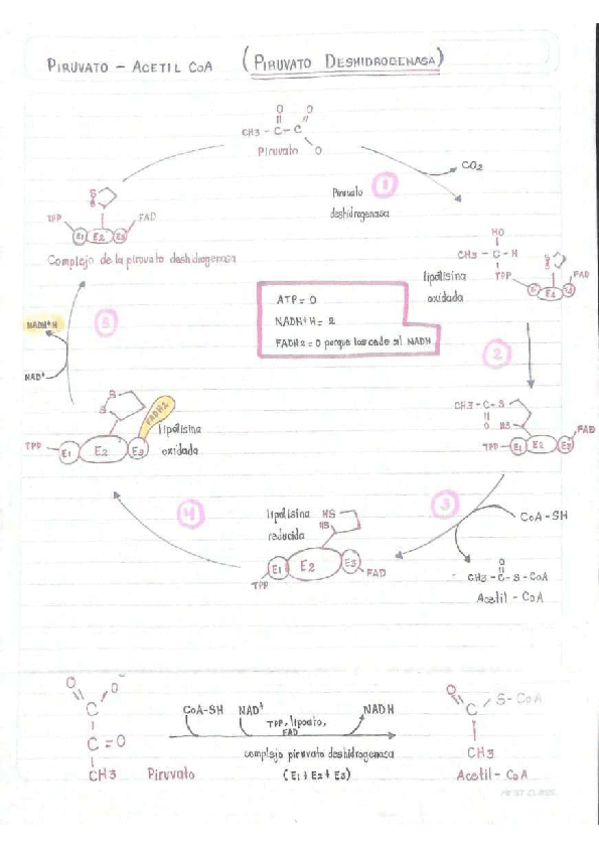 PIRUVATO - ACETIL COA (PIRUVATO DESHIDROGENASA)
O O
CH3 - C - C
O
Piruvato
CO2
1
Piruvato
deshidrogenasa
S
S
TPP FAD
E1 E2 E3
Complejo de la piruvato deshidrogenasa
HO
CH3 - C - H
TPP
lipolisina
oxidada
S
S
FAD
E1 E2 E3
ATP = 0
NADH+H = 2
FADH2 = 0 porque los cede al NADH
5
NADH+H
NAD+
2
CH3 - C - S
O HS
TPP E1 E2 E3 FAD
S
S
FADH2
lipolisina
oxidada
TPP E1 E2 E3
4
lipolisina
reducida
HS
HS
E1 E2 E3
TPP FAD
3
CoA-SH
O
CH3 - C - S - CoA
Acetil - CoA
O O-
C
C = O
CH3 Piruvato
CoA-SH NAD+ NADH
TPP, lipoato,
FAD
complejo piruvato deshidrogenasa
(E1 + E2 + E3)
O S - CoA
C
CH3
Acetil - CoA